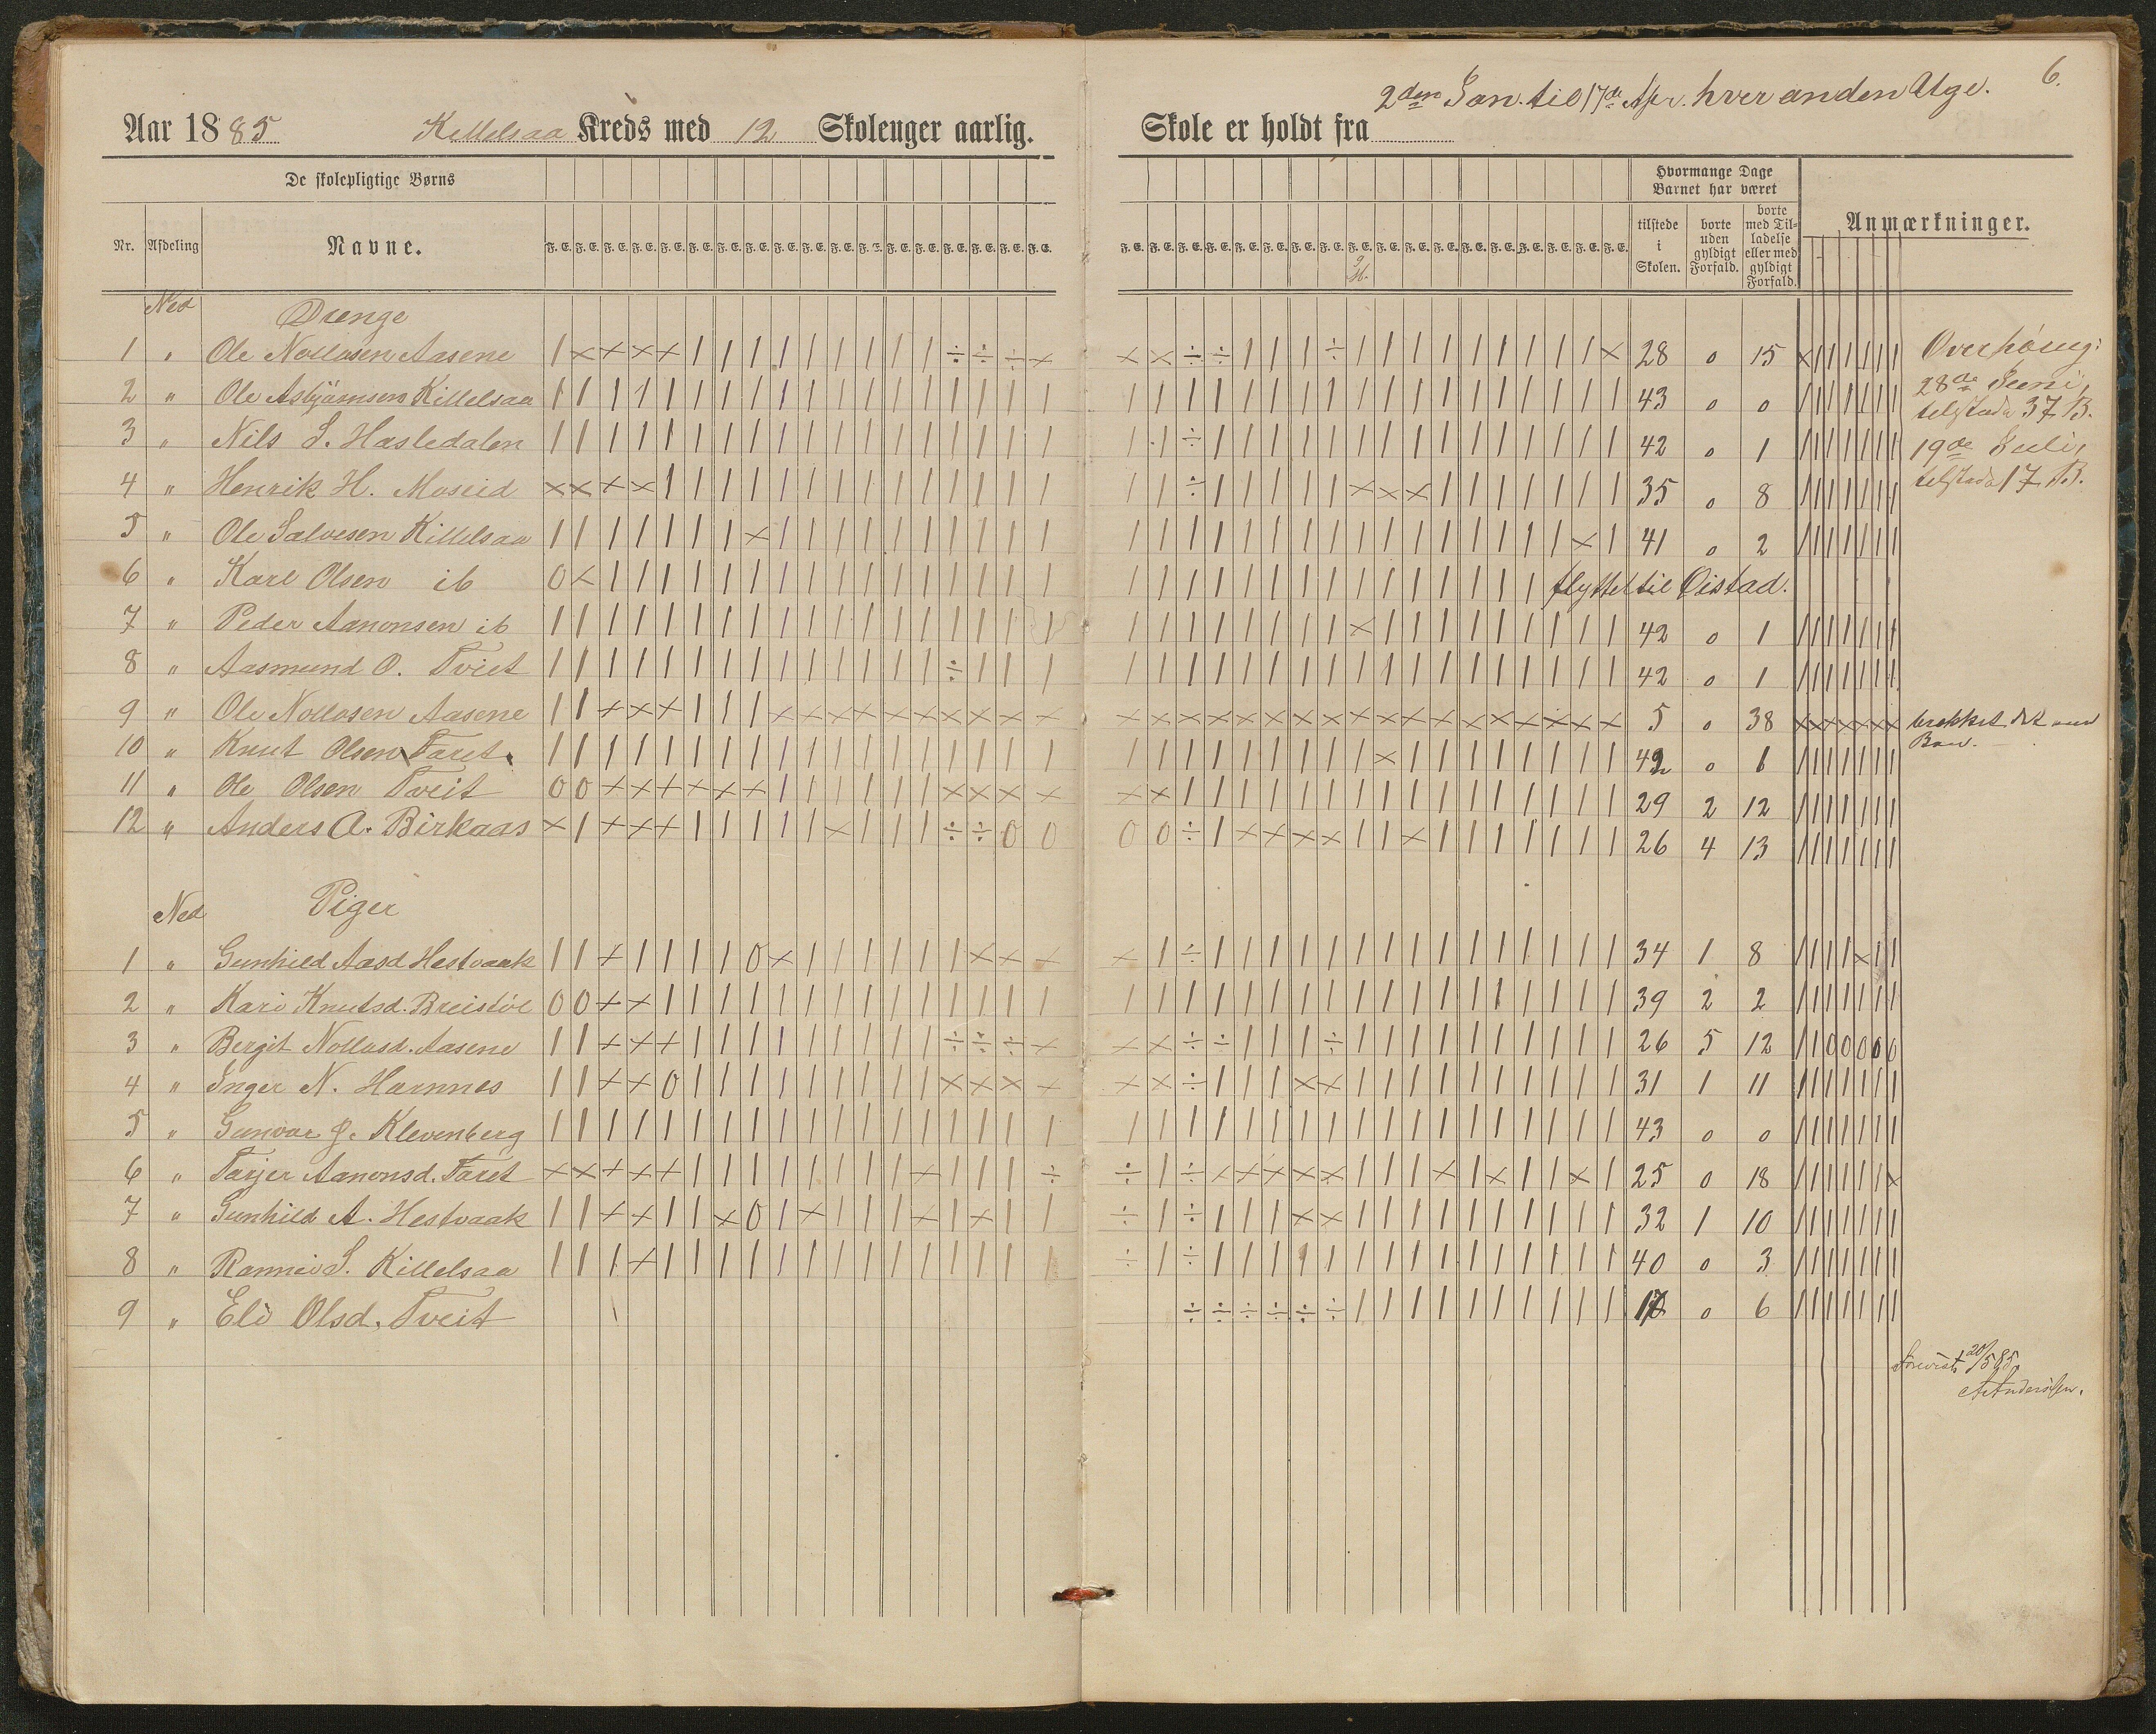 6.
2den Jan. til 17de Apr. hver anden Uge.
Aar 1885 Killelsaa Kreds med 12 Skoleuger aarlig. Skole er holdt fra
De skolepligtige Børns
Hvormange Dage Barnet har været
Nr. Afdeling Navne.
F. E. F. E. F. E. F. E. F. E. F. E. F. E. F. E. F. E. F. E. F. E. F. E. F. E. F. E. F. E. F. E. F. E. F. E.
F. E. F. E. F. E. F. E. F. E. F. E. F. E. F. E. F. E. F. E. F. E. F. E. F. E. F. E. F. E. F. E. F. E. F. E.
tilstede i Skolen. borte uden gyldigt Forfald. borte med Tilladelse eller med gyldigt Forfald. Anmærkninger.
Ned Drenge
1 " Ole Nollosen Aasene 28 0 15 Overhøring:
2 " Ole Asbjørnsen Killelsaa 43 0 0 28de Juni, tilstæde 37 B.
3 " Nils S. Hasledalen 42 0 1 19de Juli,
4 " Henrik H. Moseid 35 0 8 tilstæde 17 B.
5 " Ole Salvesen Killelsaa 41 0 2
6 " Karl Olsen ib flyttet til Øistad.
7 " Peder Aanonsen ib 42 0 1
8 " Aasmund O. Tveit 42 0 1
9 " Ole Nollosen Aasene 5 0 38 brækket
10 " Knut Olsen Faret 42 0 1
11 " Ole Olsen Tveit 29 2 12
12 " Anders A. Birkaas 26 4 13
Ned Piger
1 " Gunhild Aasd Hestvaak 34 1 8
2 " Kari Knutsd. Breistøl 39 2 2
3 " Bergit Nollosd. Aasene 26 5 12
4 " Inger N. Hamnes 31 1 11
5 " Gunvor J. Klevenberg 43 0 0
6 " Tarjer Aanonsd. Faret 25 0 18
7 " Gunhild A. Hestvaak 32 1 10
8 " Rannei S. Killelsaa 40 0 3
9 " Eli Olsd. Tveit 17 0 6
Forevist 20/5 85
A. Andersen.